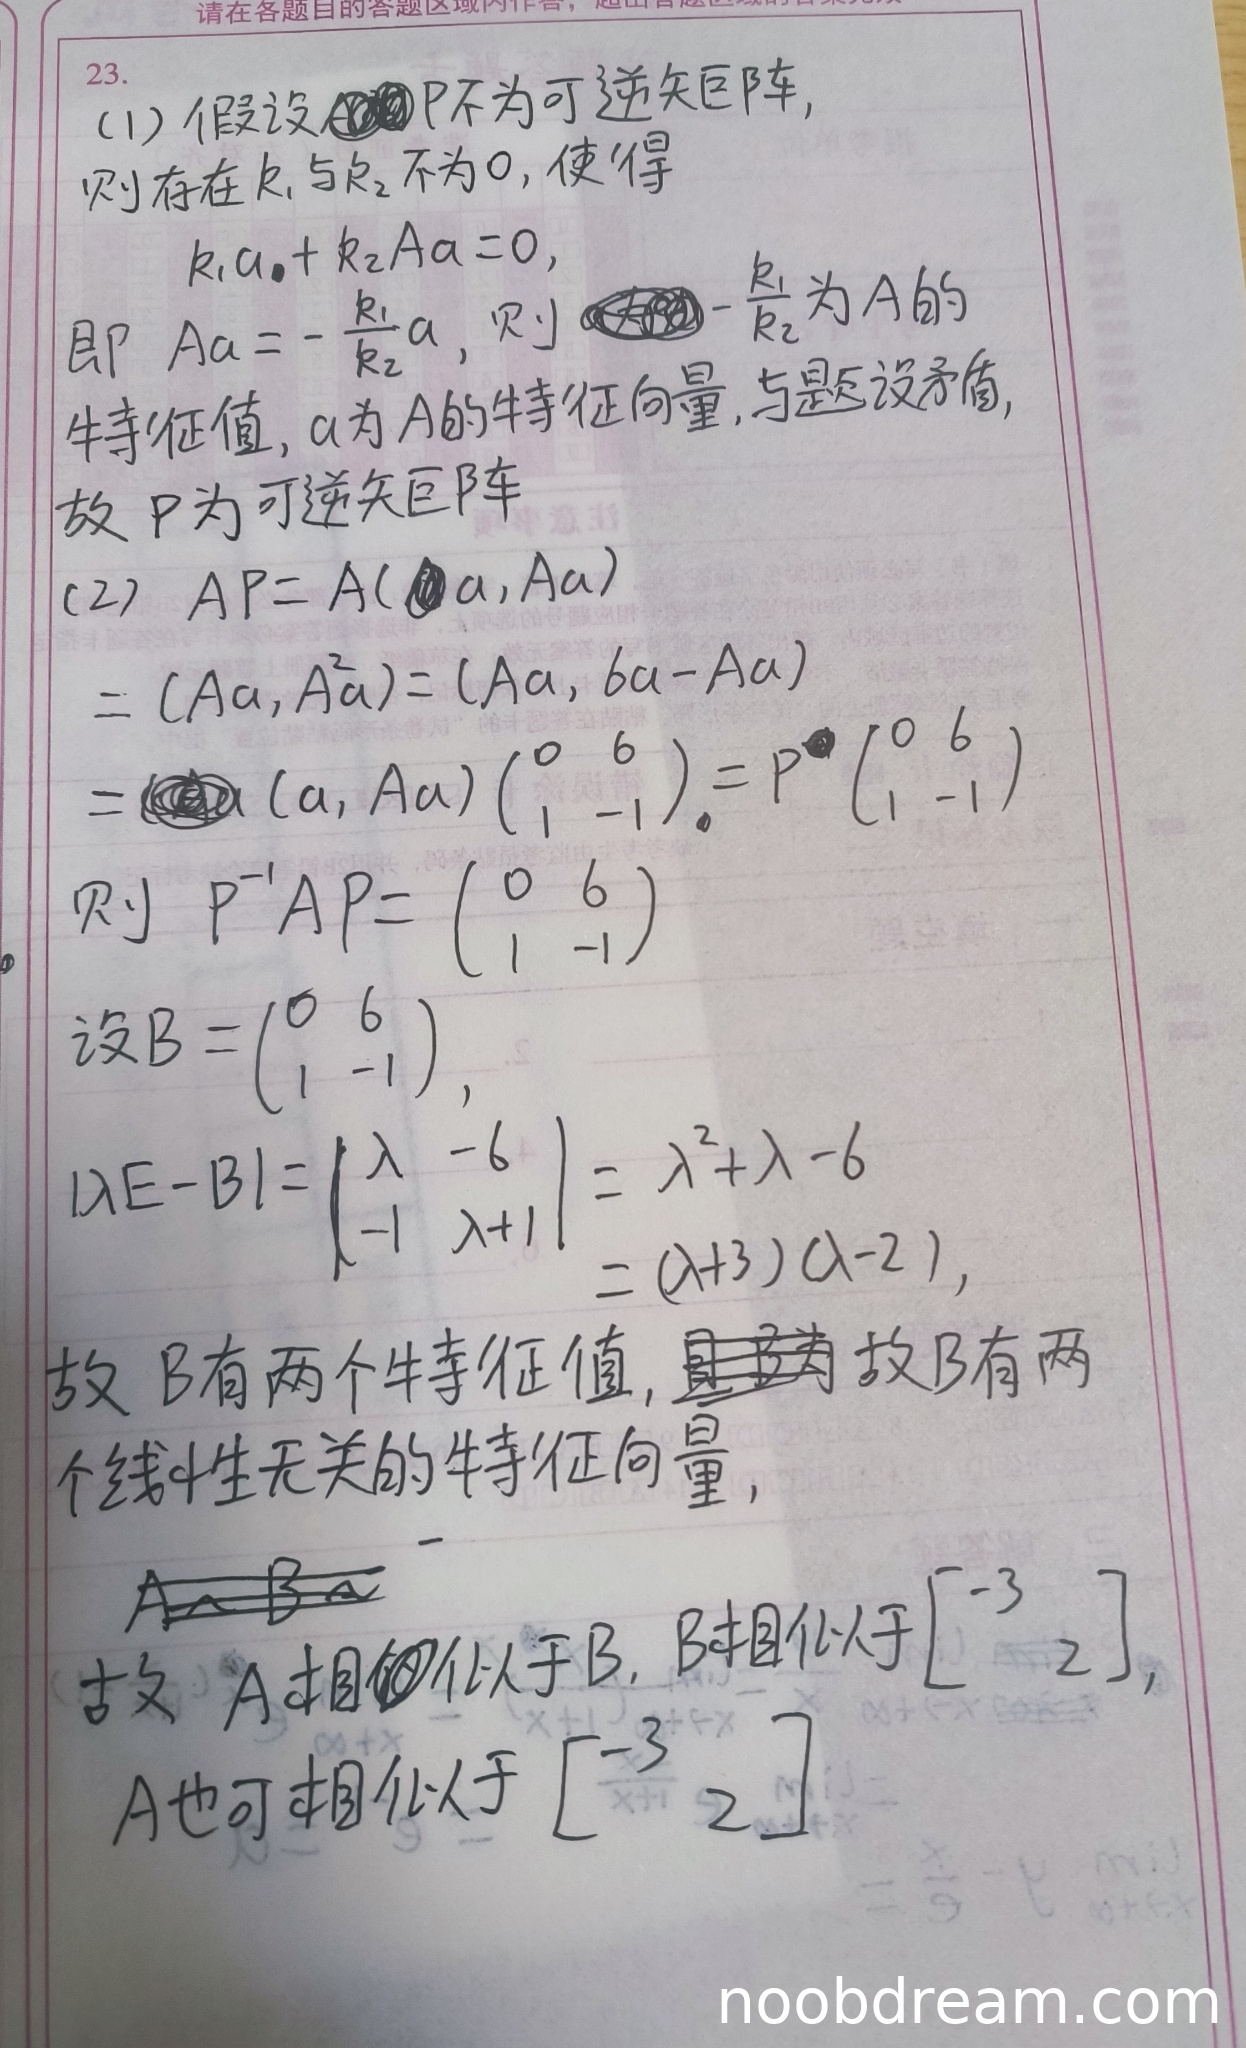 请在各题目的答题区域内作答，超出答题区域的答案无效
23.
(1) 假设P不为可逆矩阵,
则存在k₁与k₂不为0, 使得
k₁a + k₂Aa = 0,
即 Aa = - k₁/k₂ a, 则 - k₁/k₂ 为A的
特征值, a为A的特征向量, 与题设矛盾,
故 P为可逆矩阵
(2) AP = A(a, Aa)
= (Aa, A²a) = (Aa, 6a - Aa)
= (a, Aa) (0 6
1 -1) = P (0 6
1 -1)
则 P⁻¹AP = (0 6
1 -1)
设B = (0 6
1 -1),
|λE - B| = |λ -6
-1 λ+1| = λ² + λ - 6
= (λ+3)(λ-2),
故 B有两个特征值, 故B有两
个线性无关的特征向量,
故 A相似于B, B相似于[-3
2],
A也可相似于 [-3
2]
noobdream.com